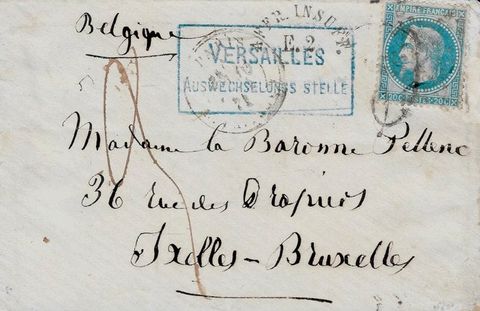 Belgique
AFFR. INSUFF.
E. 2.
VERSAILLES
AUSWECHSELUNGS STELLE
EMPIRE FRANÇAIS
20 C. POSTES 20 C.
Madame la Baronne Pellenc
36 rue des Drapiers
Ixelles - Bruxelles